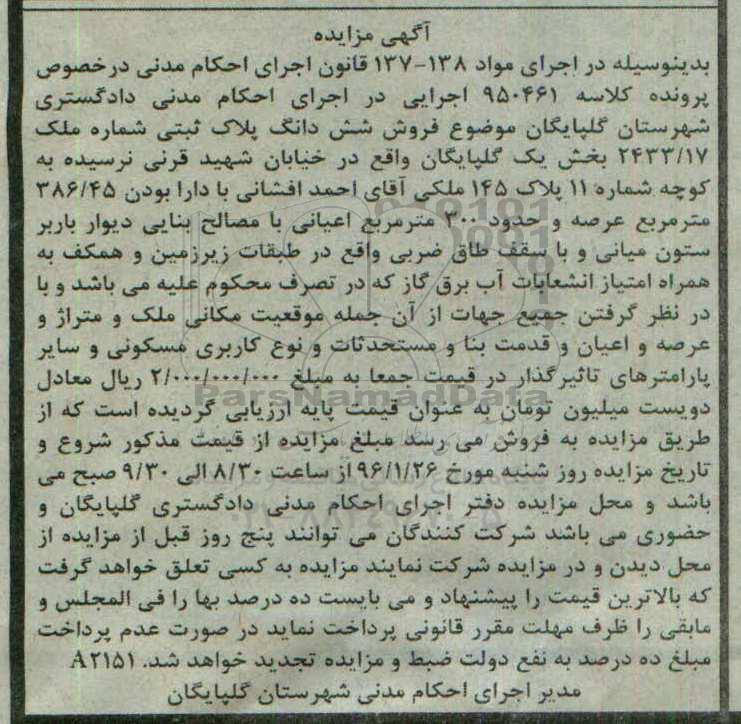 آگهی مزایده
بدینوسیله در اجرای مواد ۱۳۸-۱۳۷ قانون اجرای احکام مدنی درخصوص
پرونده کلاسه ۹۵۰۴۶۱ اجرایی در اجرای احکام مدنی دادگستری
شهرستان گلپایگان موضوع فروش شش دانگ پلاک ثبتی شماره ملک
۲۴۳۳/۱۷ بخش یک گلپایگان واقع در خیابان شهید قرنی نرسیده به
کوچه شماره ۱۱ پلاک ۱۴۵ ملکی آقای احمد افشانی با دارا بودن ۳۸۶/۴۵
مترمربع عرصه و حدود ۳۰۰ مترمربع اعیانی با مصالح بنایی دیوار باربر
ستون میانی و با سقف طاق ضربی واقع در طبقات زیرزمین و همکف به
همراه امتیاز انشعابات آب برق گاز که در تصرف محکوم علیه می باشد و با
در نظر گرفتن جمیع جهات از آن جمله موقعیت مکانی ملک و متراژ و
عرصه و اعیان و قدمت بنا و مستحدثات و نوع کاربری مسکونی و سایر
پارامترهای تاثیرگذار در قیمت جمعا به مبلغ ۲/۰۰۰/۰۰۰/۰۰۰ ریال معادل
ParsNamadData
دویست میلیون تومان به عنوان قیمت پایه ارزیابی گردیده است که از
طریق مزایده به فروش می رسد مبلغ مزایده از قیمت مذکور شروع و
تاریخ مزایده روز شنبه مورخ ۹۶/۱/۲۶ از ساعت ۸/۳۰ الی ۹/۳۰ صبح می
باشد و محل مزایده دفتر اجرای احکام مدنی دادگستری گلپایگان و
حضوری می باشد شرکت کنندگان می توانند پنج روز قبل از مزایده از
محل دیدن و در مزایده شرکت نمایند مزایده به کسی تعلق خواهد گرفت
که بالاترین قیمت را پیشنهاد و می بایست ده درصد بها را فی المجلس و
مابقی را ظرف مهلت مقرر قانونی پرداخت نماید در صورت عدم پرداخت
مبلغ ده درصد به نفع دولت ضبط و مزایده تجدید خواهد شد. A۲۱۵۱
مدیر اجرای احکام مدنی شهرستان گلپایگان